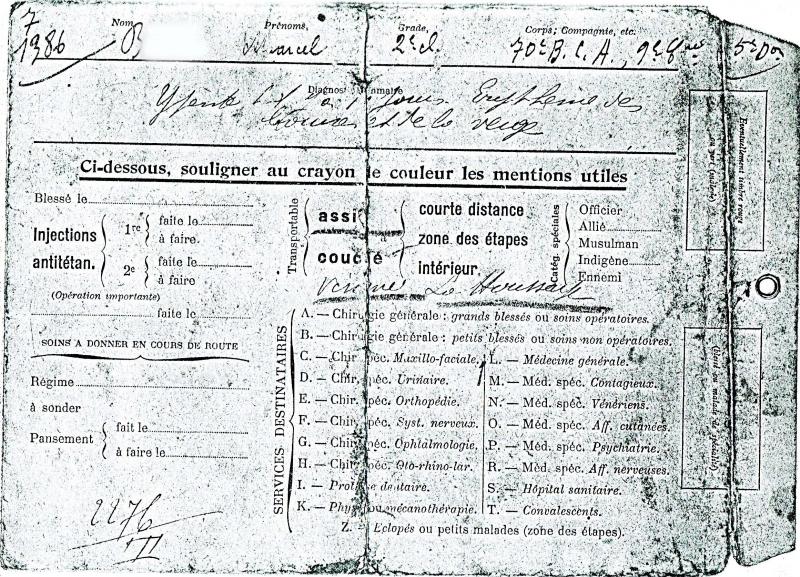 7
1386
Nom B Prénoms, Marcel Grade, 2e cl. Corps; Compagnie, etc. 70e B.C.A., 9e
Diagnostic sommaire
jours Erythème des
et de la verge
Ci-dessous, souligner au crayon de couleur les mentions utiles
Blessé le
Injections antitétan.
1re { faite le
à faire.
2e { faite le
à faire
(Opération importante)
faite le
SOINS A DONNER EN COURS DE ROUTE
Régime
à sonder
Pansement { fait le
à faire le
2276
III
Transportable
assis
couché
courte distance
zone des étapes
intérieur.
Catég. spéciales
Officier
Allié
Musulman
Indigène
Ennemi
Le
SERVICES DESTINATAIRES
A. — Chirurgie générale : grands blessés ou soins opératoires.
B. — Chirurgie générale : petits blessés ou soins non opératoires.
C. — Chir. spéc. Maxillo-faciale.
D. — Chir. spéc. Urinaire.
E. — Chir. spéc. Orthopédie.
F. — Chir. spéc. Syst. nerveux.
G. — Chir. spéc. Ophtalmologie.
H. — Chir. spéc. Oto-rhino-lar.
I. — Protèse dentaire.
K. — Physi ou mécanothérapie.
L. — Médecine générale.
M. — Méd. spéc. Contagieux.
N. — Méd. spéc. Vénériens.
O. — Méd. spéc. Aff. cutanées.
P. — Méd. spéc. Psychiatrie.
R. — Méd. spéc. Aff. nerveuses.
S. — Hôpital sanitaire.
T. — Convalescents.
Z. — Eclopés ou petits malades (zone des étapes).